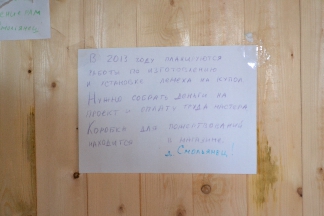 В 2011 году планируются
работы по изготовлению
и установке
Нужно собрать деньги на
проект и оплату труда мастера
Коробка для пожертвований
находится в магазине
д. Смольянец!